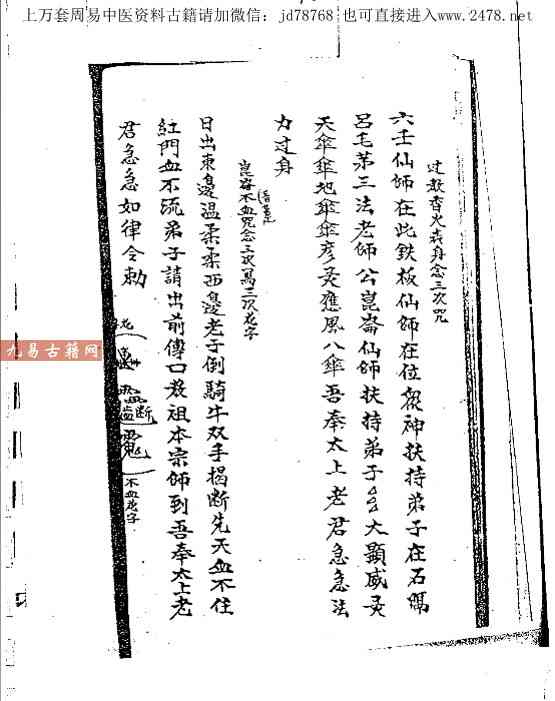 上万套周易中医资料古籍请加微信：jd78768 也可直接进入www.2478.net
过教香火衣身念三次咒
六壬仙師在此鉄板仙師在位眾神扶持弟子在石隅
呂毛茅三法老師公崑崙仙師扶持弟子 大顯威灵
天傘傘地傘傘彦灵應風八傘吾奉太上老君急急法
力过身
崑崙不血咒念三次馬三次花字
日出東邊温柔柔西邊老子倒騎牛双手揭断先天血不住
紅門血不流弟子請出前傳口教祖本宗師到吾奉太上老
君急急如律令勅
不血花字
九易古籍网